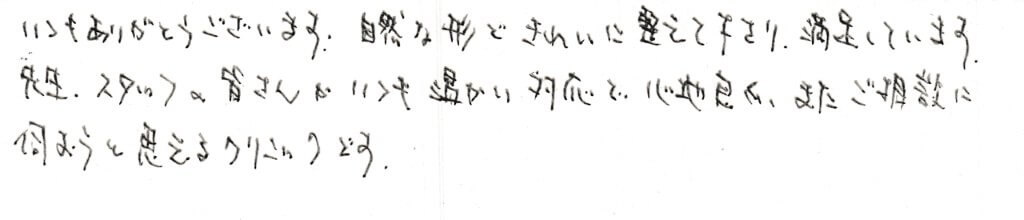 いつもありがとうございます。自然な形できれいに整えて下さり、満足しています。
先生、スタッフの皆さんがいつも温かい対応で、心地良く、またご相談に
伺おうと思えるクリニックです。